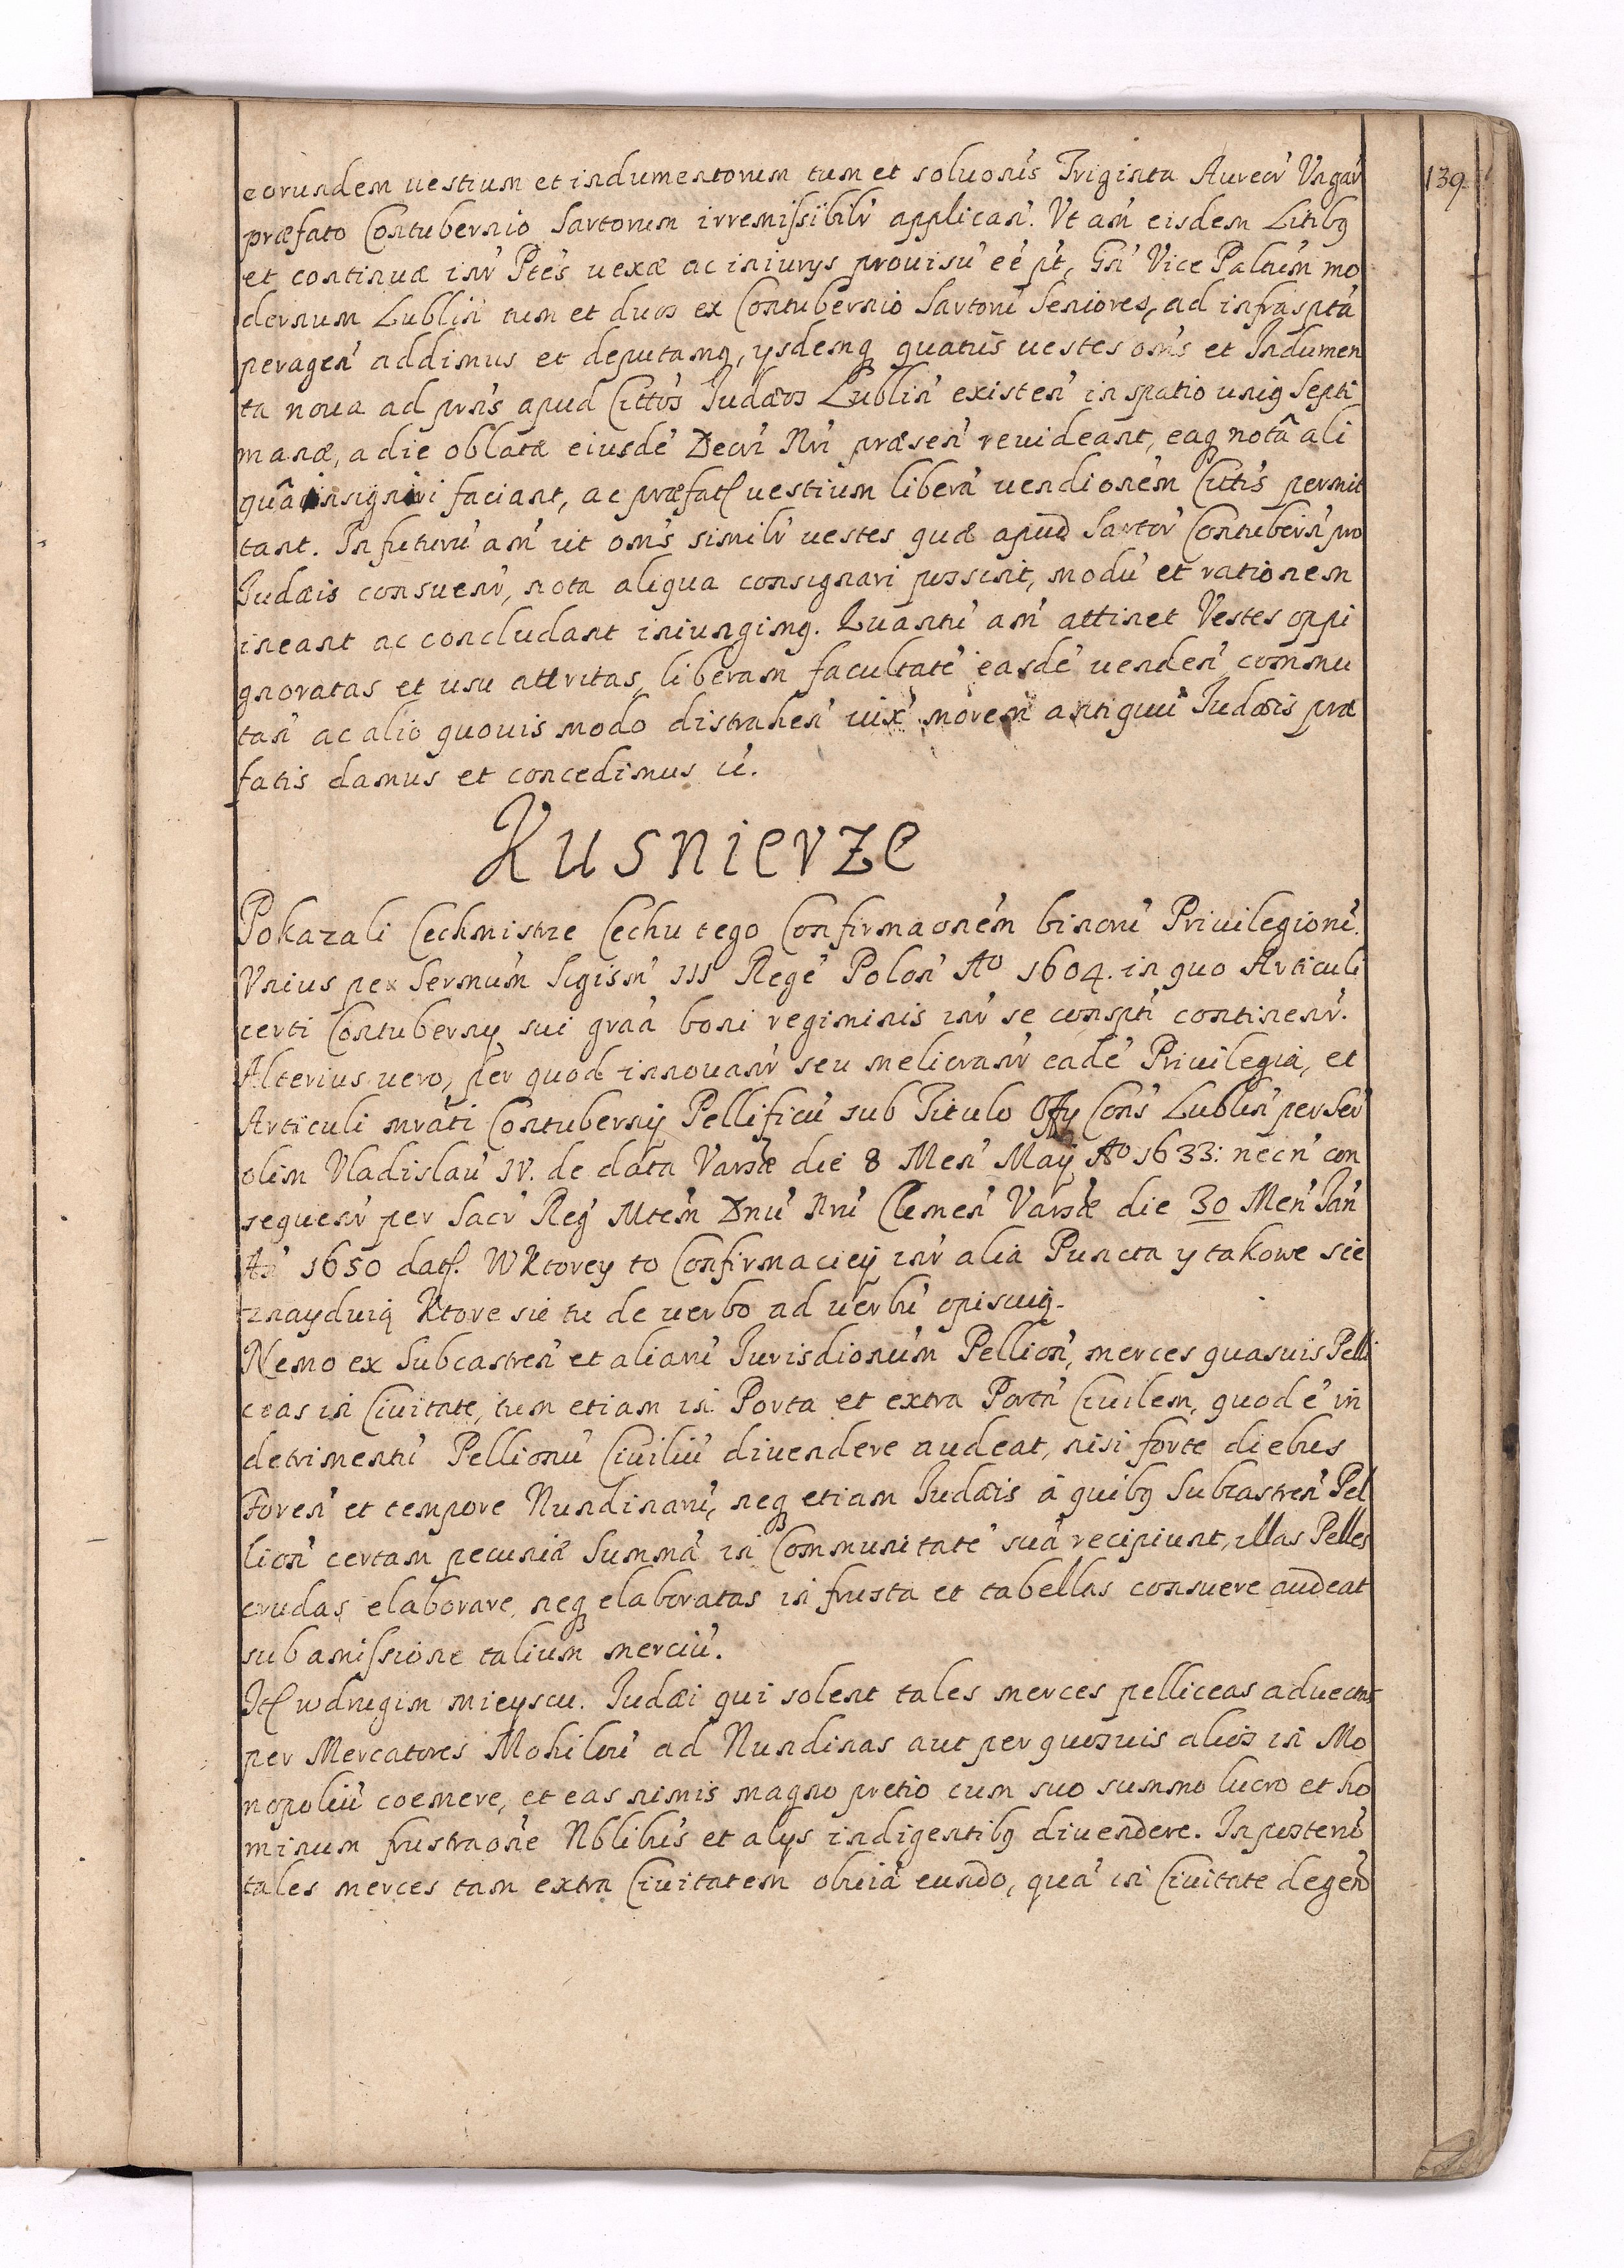 139
eorundem uestium et indumentorum tum et soluonis Triginta Aureor Ungar
præfato Contubernio Sartorum irremissibilr applican. Vt am eisdem Litibq
et continuæ inr Ptes uexæ ac iniurys prouisu ee pt, Gn Vice Paltum mo
dernum Lublin tum et duos ex Contubernio Sartoru Seniores, ad infraspta
peragen addimus et deputamq, ysdemq quatus uestes oms et Indumen
ta noua ad pns apud Cittos Judæos Lublin existen in spatio uniq Septi
manæ, a die oblatæ eiusde Decri Nri præsen reuideant, eaq notâ ali
quâ insigniri faciant, ac præfat uestium libera uendionem Cittis permit
tant. In futuru am ut oms similr uestes quæ apud Sartor Contubern pro
Judæis consuenr, nota aliqua consignari possint, modu et rationem
ineant ac concludant iniungimq. Quantu am attinet Vestes oppi
gnoratas et usu attritas, liberam facultate easde uenden commu
tan ac alio quouis modo distrahen iux morem antiquu Judæis præ
fatis damus et concedimus
Kusnierze
Pokazali Cechmistrze Cechu tego Confirmaonem binoru Priuilegioru.
Vnius per Sermum Sigism III Rege Polon Aº 1604. in quo Articuli
certi Contuberny sui graa boni regiminis inr se conspti continenr.
Alterius uero, per quod innouanr seu melioranr eade Priuilegia, et
Articuli mrati Contuberny Pellificu sub Titulo Offy Cons Lublin per Ser
olim Vladislau IV. de data Varsæ die 8 Men May Aº 1633: necn con
sequenr per Sacr Reg Mtem Dnu Nru Clemen Varsæ die 30 Men Jan
An 1650 dat. W Ktorey to Confirmaciey inr alia Puncta y takowe sie
znayduią Ktore sie tu de uerbo ad uerbu opisuią.
Nemo ex Subcastren et aliaru Jurisdionum Pellion, merces quasuis Pelli
ceas in Ciuitate, tum etiam in Porta et extra Porta Ciuilem, quod e in
detrimentu Pellionu Ciuiliu diuendere audeat, nisi forte diebus
Foren et tempore Nundinaru, neq etiam Judæis à quibq Subcastren Pel
lion certam pecuniæ Summa in Communitate sua recipiunt, illas Pelles
crudas elaborare, neq elaboratas in frusta et tabellas consuere audeat
sub amissione talium merciu.
It w drugim mieyscu. Judæi qui solent tales merces pelliceas aduectas
per Mercatores Mohiloui ad Nundinas aut per quosuis alios in Mo
nopoliu coemere, et eas nimis magno pretio cum suo summo lucro et ho
minum frustraone Nblibus et alys indigentibq diuendere. In posteru
tales merces tam extra Ciuitatem obuia eundo, qua in Ciuitate degend